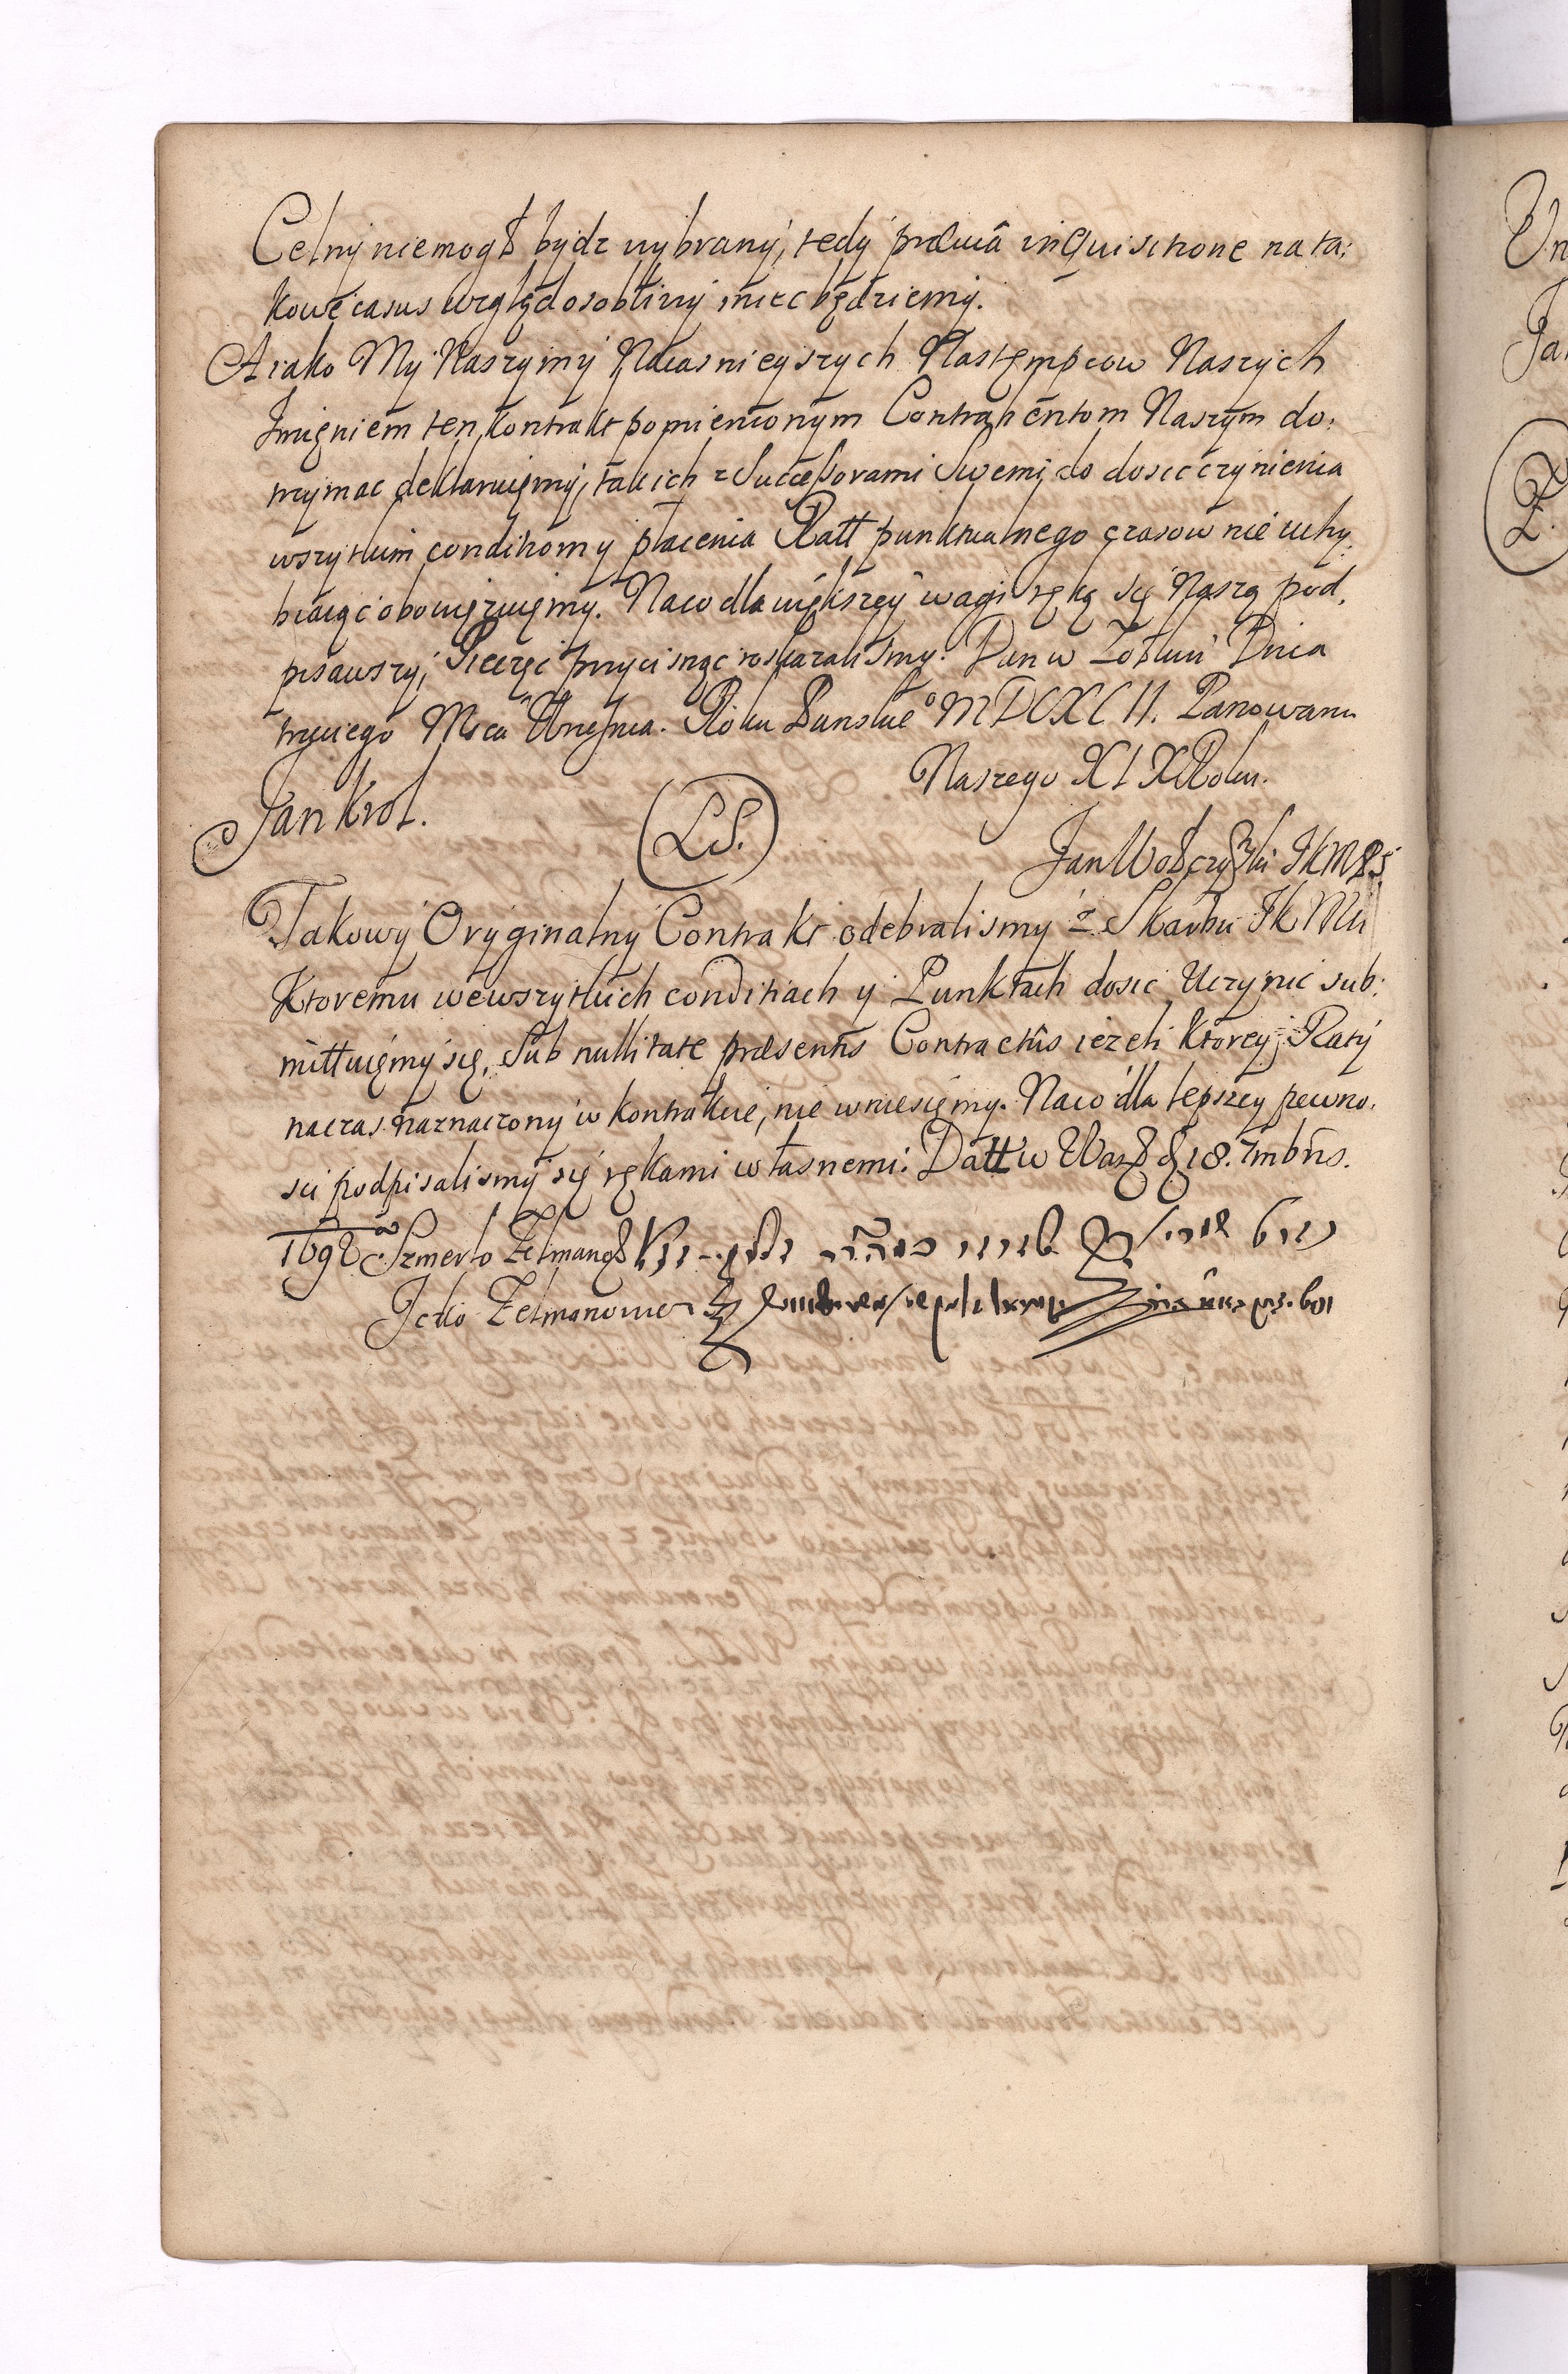 Celny niemogł bydz wybrany, tedy prævia inquisitione na ta:
kowe casus wzgląd osobliwy miec będziemy.
A iako My Naszym y Naiasnieyszych Nastempcow Naszych
Imięniem ten kontrakt pomienionym Contrahentom Naszym do:
trzymac deklaruięmy, tak ich z Successorami Swemi do dosic czynienia
wszytkim conditiom y płacenia Ratt punktualnego czasow nie uchy:
biaiąc obowięzuięmy. Na co dla większey wagi ręką się Naszą pod,
pisawszy, Pieczęc przycisnąc roskazalismy. Dan w Żołkwi Dnia
trzeciego Mca Wrzesnia. Roku Panskie⁰ MDCXCII. Panowania
Naszego XIX Roku.
Jan Krol.
(LS.)
Jan Wołczynski JKM
Takowy Oryginalny Contrakt odebralismy z Skarbu JKMci
Ktoremu we wszytkich conditiach y Punktach dosic Uczynic sub:
mittuięmy się, Sub nullitate præsentis Contractus ieżeli ktorey Raty
na czas naznaczony w kontrakcie, nie wniesięmy. Na co dla lepszey pewno,
sci podpisalismy się rękami własnemi. Datt w Warsz 18. 7mbris.
1692 Szmerlo Zelmano
Icko Zelmanowicz